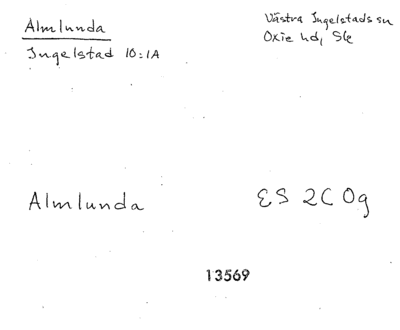 Almlunda
Ingelstad 10:1A
Västra Ingelstads sn
Oxie hd, Sk
Almlunda
ES 2C 0g
13569